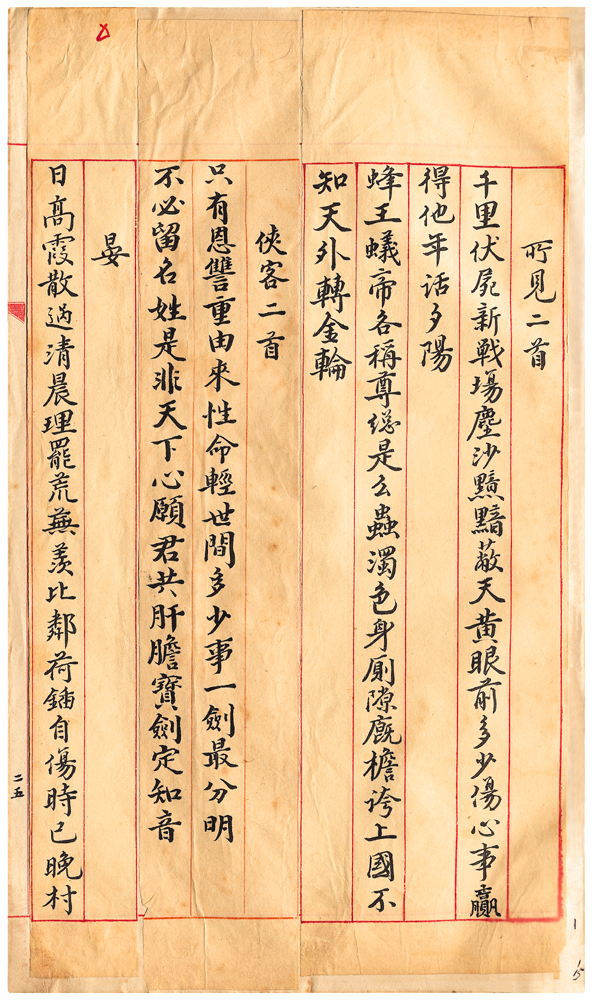 所見二首
千里伏屍新戰場塵沙黲黯蔽天黄眼前多少傷心事贏
得他年話夕陽
蜂王蟻帝各稱尊總是么蟲濁色身厠隙廐檐誇上國不
知天外轉金輪
俠客二首
只有恩讐重由來性命輕世間多少事一劍最分明
不必留名姓是非天下心願君共肝膽寶劍定知音
晏
日高霞散過清晨理罷荒蕪羨比鄰荷鍤自傷時已晚村
二五